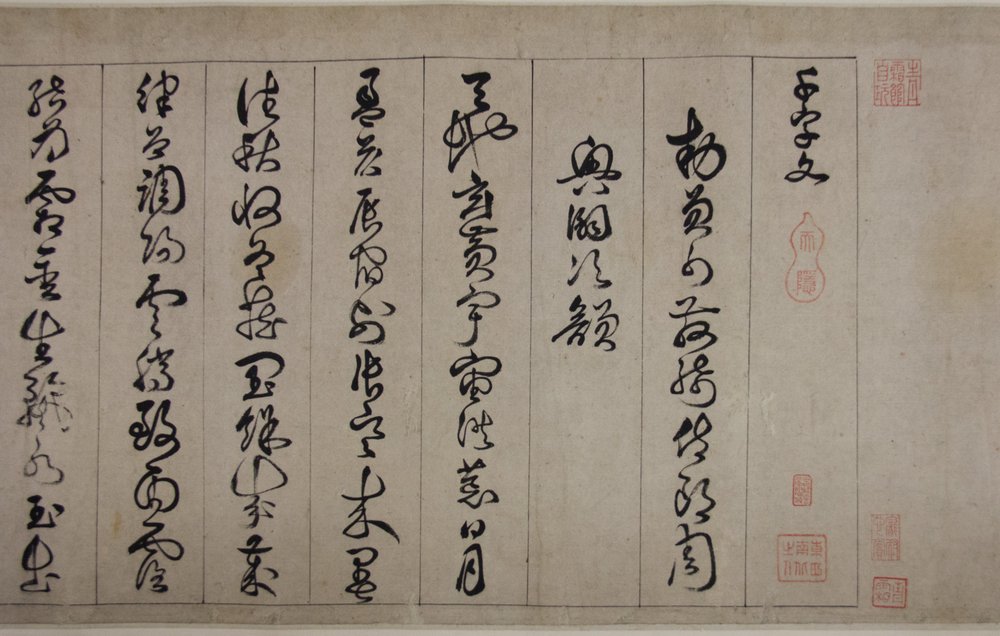 千字文
勅員外散騎侍郎周
興嗣次韻
天地玄黃宇宙洪荒日月
盈昃辰宿列張寒來暑
往秋收冬藏閏餘成歲
律召調陽雲騰致雨露
結為霜金生麗水玉出
天隱
東西南北之人